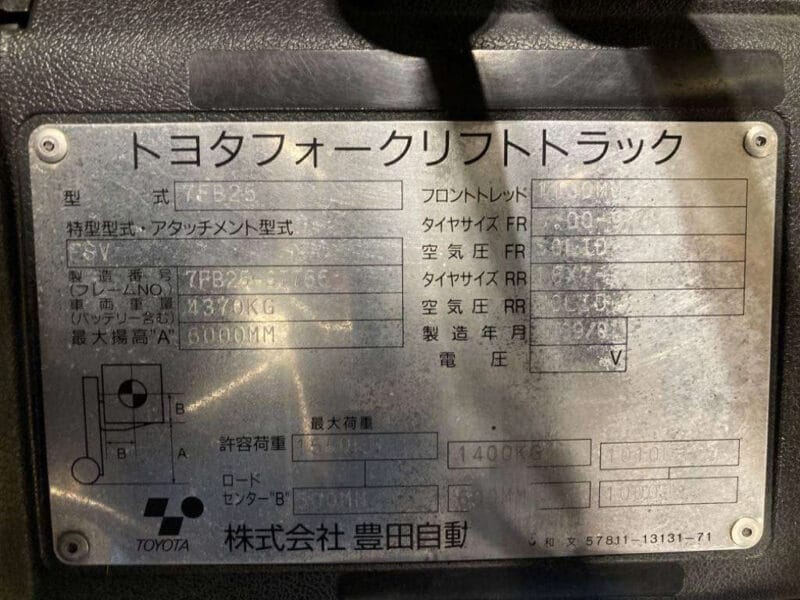 トヨタフォークリフトトラック
型式 7FB25
特型型式・アタッチメント型式
FSV
製造番号
(フレームNO.)
車両重量 4370KG
(バッテリー含む)
最大揚高"A" 6000MM
フロントトレッド
タイヤサイズ FR
空気圧 FR
タイヤサイズ RR
空気圧 RR
製造年月
電圧 V
B
B A
最大荷重
許容荷重 1400KG
ロード
センター"B"
TOYOTA
株式会社 豊田自動
和文 57811-13131-71